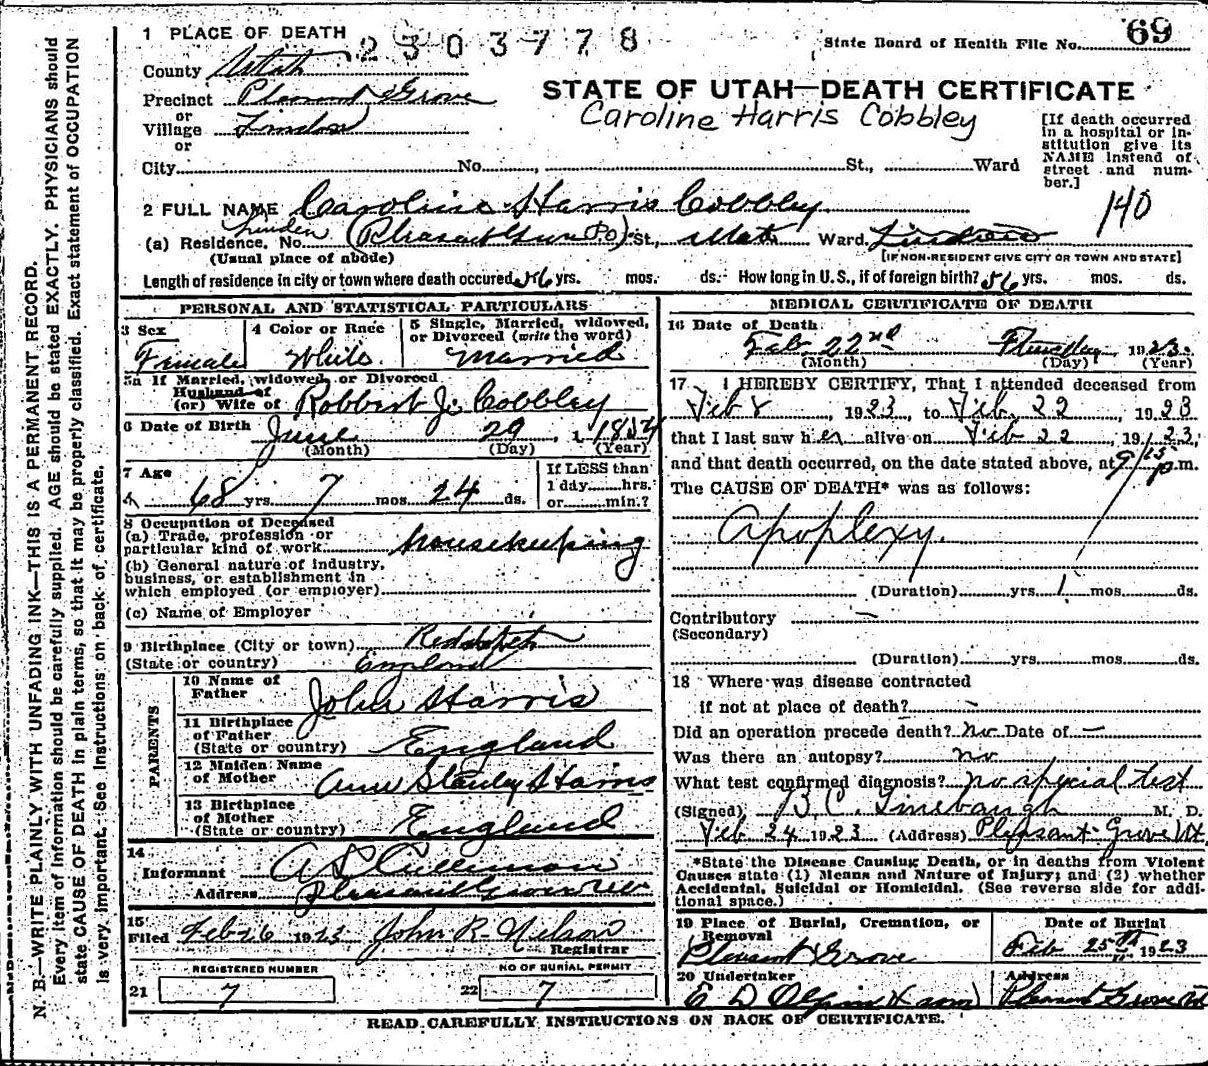 1 PLACE OF DEATH
2303778
State Board of Health File No. 69
County Utah
STATE OF UTAH—DEATH CERTIFICATE
Precinct Pleasant Grove
Caroline Harris Cobbley
or
Village Lindon
or
City No. , St., Ward
[If death occurred in a hospital or in-
stitution give its
NAME instead of
street and num-
ber.]
2 FULL NAME Caroline Harris Cobbley
140
(a) Residence. No. Linden (Pleasant Grove P.O.) St., Utah Ward.
(Usual place of abode)
[IF NON-RESIDENT GIVE CITY OR TOWN AND STATE]
Length of residence in city or town where death occured 56 yrs. mos. ds. How long in U.S., if of foreign birth? 56 yrs. mos. ds.
PERSONAL AND STATISTICAL PARTICULARS
3 Sex
Female
4 Color or Race
White.
5 Single, Married, widowed,
or Divorced (write the word)
Married
5a If Married, widowed or Divorced
Husband of
(or) Wife of Robbert J. Cobbley
6 Date of Birth June 29, 1854
(Month) (Day) (Year)
7 Age
68 yrs 7 mos 24 ds.
If LESS than
1 day hrs.
or min.?
8 Occupation of Deceased
(a) Trade, profession or
particular kind of work housekeeping
(b) General nature of industry,
business, or establishment in
which employed (or employer)
(c) Name of Employer
9 Birthplace (City or town)
(State or country) England
PARENTS
10 Name of
Father John Harris
11 Birthplace
of Father
(State or country) England
12 Maiden Name
of Mother Ann Stanley Harris
13 Birthplace
of Mother
(State or country) England
14
Informant
Address Pleasant Grove
15
Filed Feb 26 1923 John R. Nelson
Registrar
REGISTERED NUMBER
21 7
NO OF BURIAL PERMIT
22 7
MEDICAL CERTIFICATE OF DEATH
16 Date of Death
Feb 22nd 1923
(Month) (Day) (Year)
17 I HEREBY CERTIFY, That I attended deceased from
Feb 8, 1923, to Feb. 22, 1923
that I last saw her alive on Feb 22, 1923,
and that death occurred, on the date stated above, at 9/15 p.m.
The CAUSE OF DEATH* was as follows:
Apoplexy.
(Duration) yrs 1 mos. ds.
Contributory —
(Secondary)
(Duration) yrs mos. ds.
18 Where was disease contracted
if not at place of death? -
Did an operation precede death? no Date of —
Was there an autopsy? no
What test confirmed diagnosis? no special test
(Signed) B. C. Linebaugh M. D.
Feb 24 1923 (Address) Pleasant Grove Ut.
*State the Disease Causing Death, or in deaths from Violent
Causes state (1) Means and Nature of Injury; and (2) whether
Accidental, Suicidal or Homicidal. (See reverse side for addi-
tional space.)
19 Place of Burial, Cremation, or
Removal
Pleasant Grove
Date of Burial
Feb 25th 1923
20 Undertaker
Address
Pleasant Grove Ut
READ CAREFULLY INSTRUCTIONS ON BACK OF CERTIFICATE.
N. B.—WRITE PLAINLY WITH UNFADING INK—THIS IS A PERMANENT RECORD.
Every item of information should be carefully supplied. AGE should be stated EXACTLY. PHYSICIANS should
state CAUSE OF DEATH in plain terms, so that it may be properly classified. Exact statement of OCCUPATION
is very important. See instructions on back of certificate.